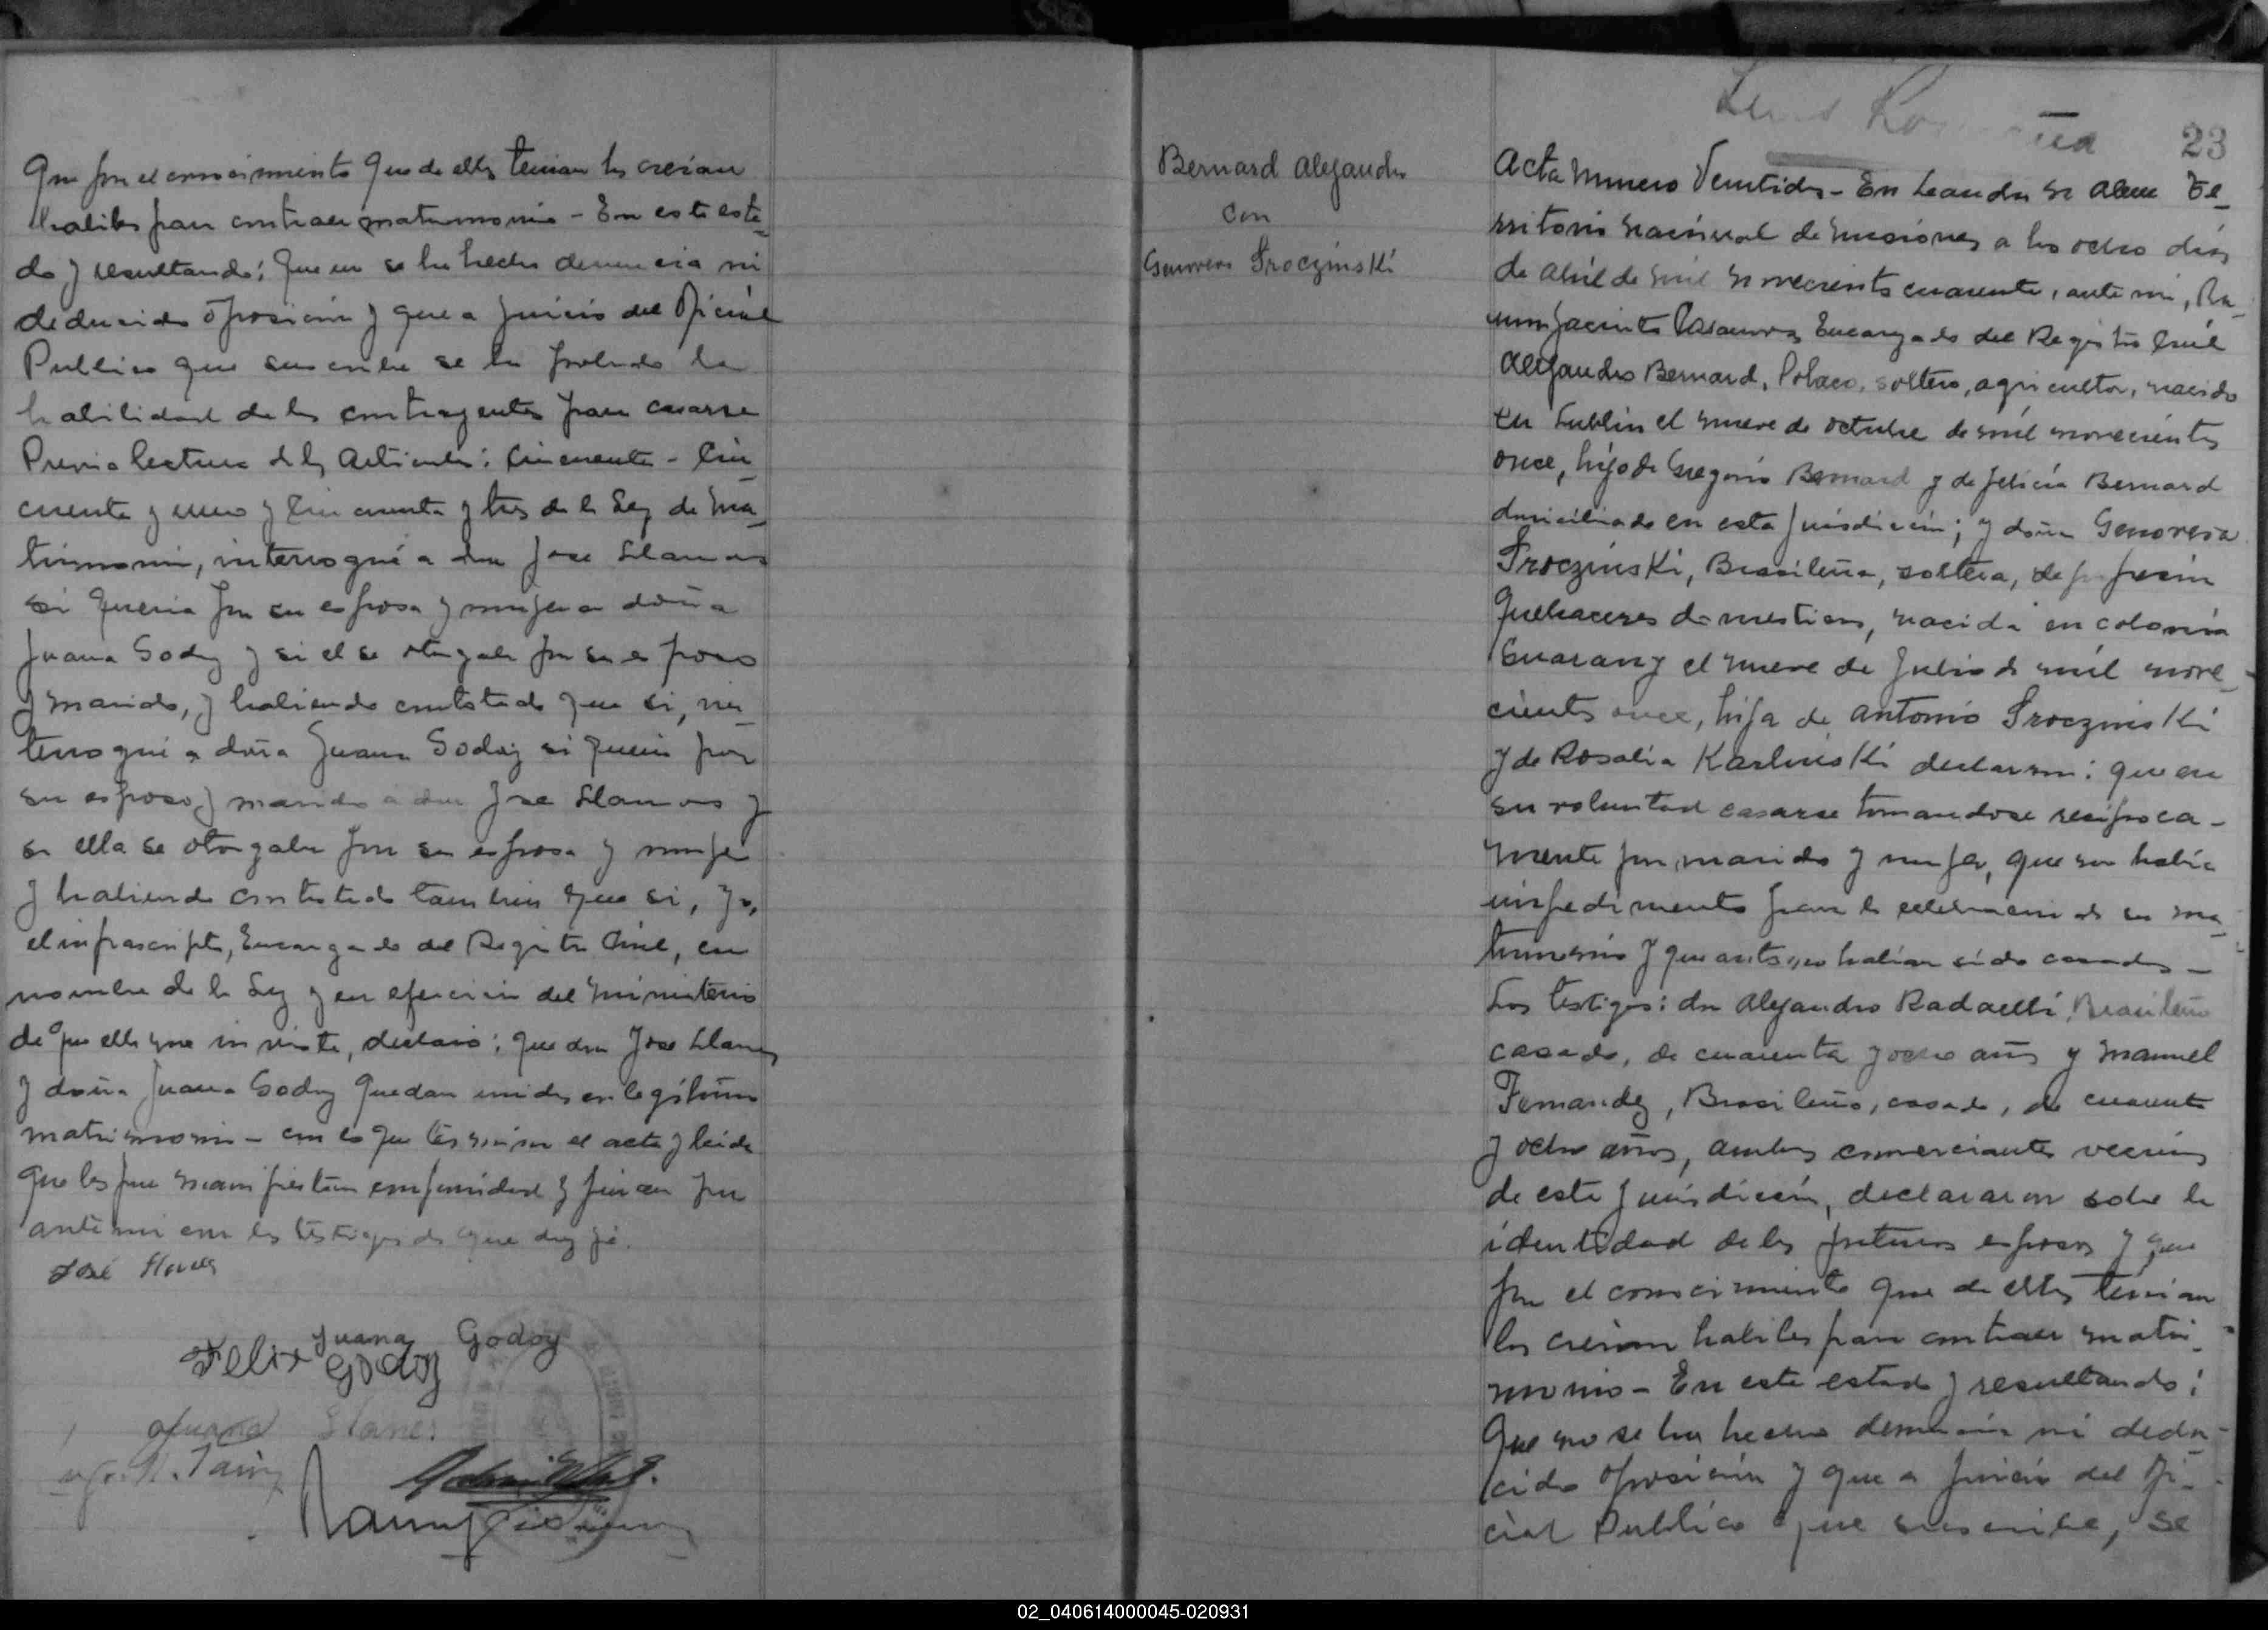 Que por el conocimiento que de ellos tenian los creian
habiles para contraer matrimonio - En este esta_
do y resultando: Que no se ha hecho denuncia ni
deducido oposición y que a juicio del Oficial
Publico que suscribe se ha probado la
habilidad de los contrayentes para casarse
Previa lectura de los Articulos: Cincuenta - Cin_
cuenta y uno y Cincuenta y tres de la Ley de Ma_
trimonio, interrogué a don Jose Llanes
si queria por su esposa y mujer a doña
Juana Godoy y si el se otorgaba por su esposo
y marido, y habiendo contestado que si, in_
terrogué a doña Juana Godoy si queria por
su esposo y marido a don Jose Llanes y
si ella se otorgaba por su esposa y mujer
y habiendo contestado tambien que si, yo,
el infrascripto, Encargado del Registro Civil, en
nombre de la Ley y en ejercicio del ministerio
de que ella me inviste, declaro: que don Jose Llanes
y doña Juana Godoy quedan unidos en legitimo
matrimonio - con lo que termina el acta y leida
que les fue manifiestan conformidad y firman por
ante mi con los testigos de que doy fé.
José Llanes
Juana Godoy
Felix Godoy
Llanes
Bernard Alejandro
con
Genoveva Sroczinski
23
Acta Numero Veintidos - En Leandro N Alem Te_
rritorio Nacional de Misiones a los ocho dias
de abril de mil novecientos cuarenta, ante mi, Ra_
mon Jacinto Casanova Encargado del Registro Civil
Alejandro Bernard, Polaco, soltero, agricultor, nacido
en Lublin el nueve de octubre de mil novecientos
once, hijo de Gregorio Bernard y de Felicia Bernard
domiciliado en esta jurisdicción; y doña Genoveva
Sroczinski, Brasileña, soltera, de profesion
quehaceres domesticos, nacida en colonia
Guarany el nueve de Julio de mil nove_
cientos once, hija de Antonio Sroczinski
y de Rosalia Karlinski declararon: que era
su voluntad casarse tomandose reciproca-
mente por marido y mujer, que no habia
impedimento para la celebracion de su ma_
trimonio y que antes no habian sido casados -
Los testigos: don Alejandro Radaelli, Brasileño
casado, de cuarenta y ocho años y Manuel
Fernandez, Brasileño, casado, de cuarenta
y ocho años, ambos comerciantes vecinos
de esta jurisdicción, declararon sobre la
identidad de los futuros esposos y que
por el conocimiento que de ellos tenian
los creian habiles para contraer matri_
monio - En este estado y resultando:
Que no se ha hecho denuncia ni dedu-
cido oposición y que a juicio del Ofi-
cial Publico que suscribe, se
02_040614000045-020931